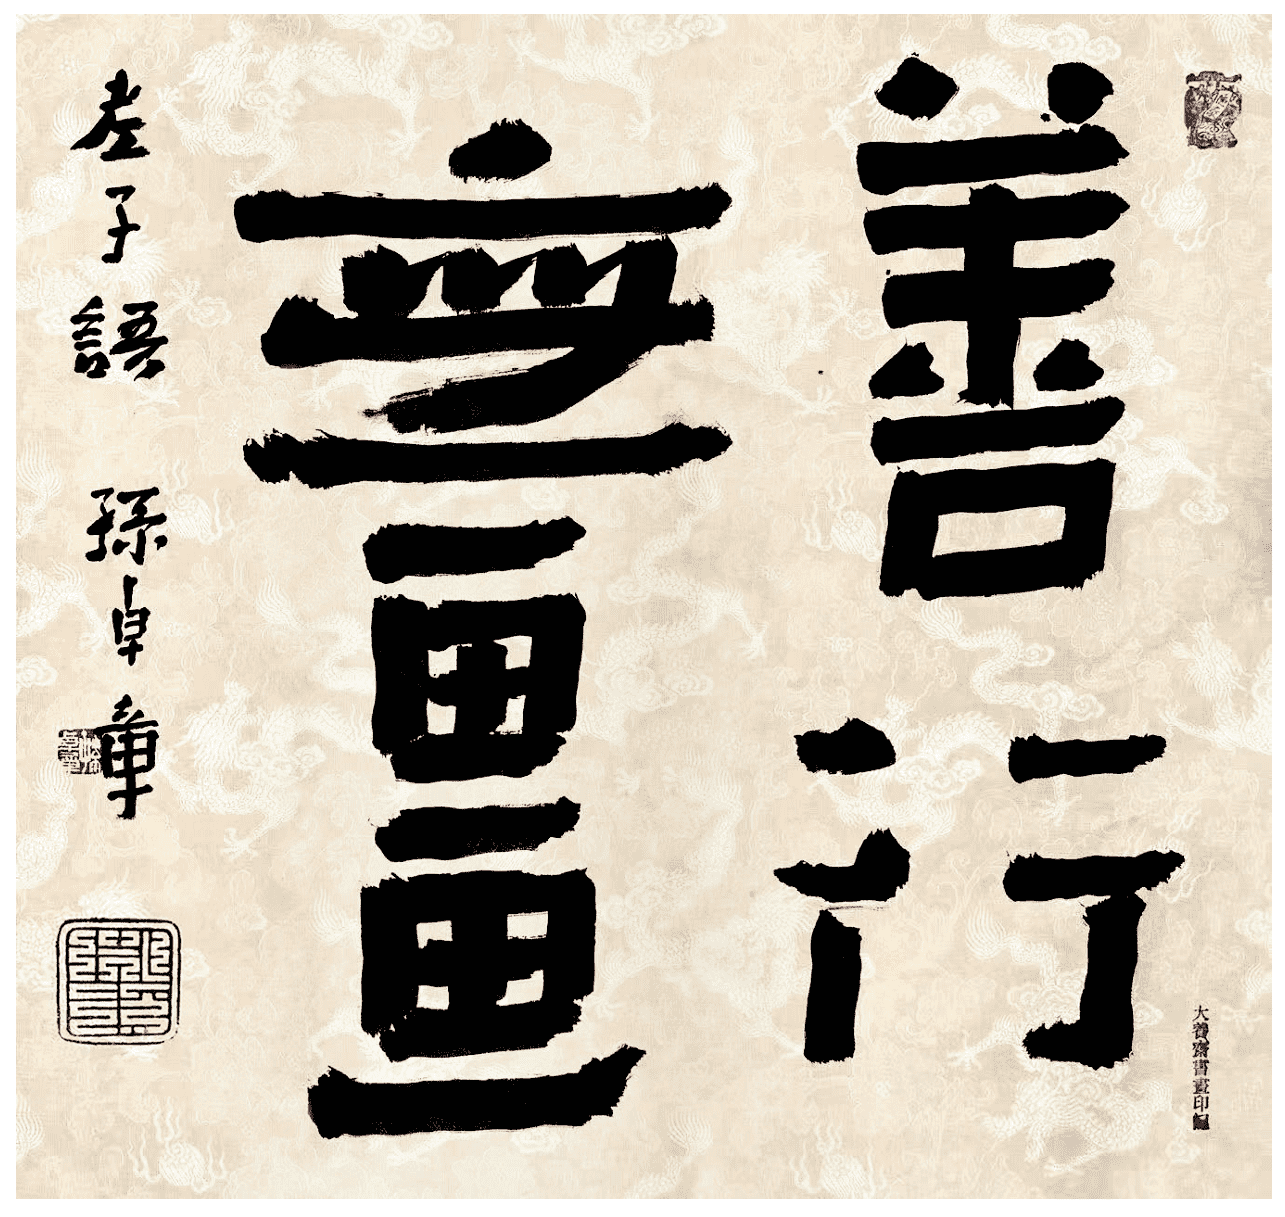 善行
無畺
老子語 孫卓章
大養齋書畫印